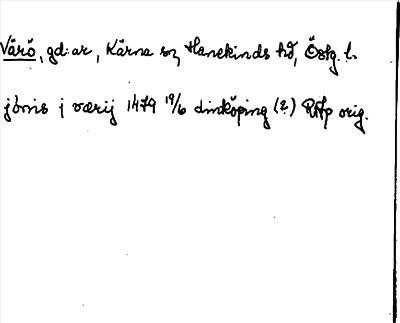 Värö, gd:ar, Kärna sn, Hanekinds hd, Östg. l.
jönis j værij 1479 19/6 Linköping (2) RAp orig.